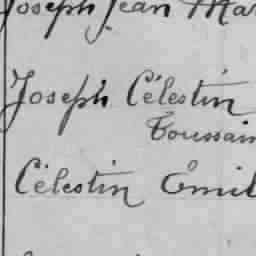 Joseph Jean Ma
Joseph Célestin
Toussain
Célestin Emil